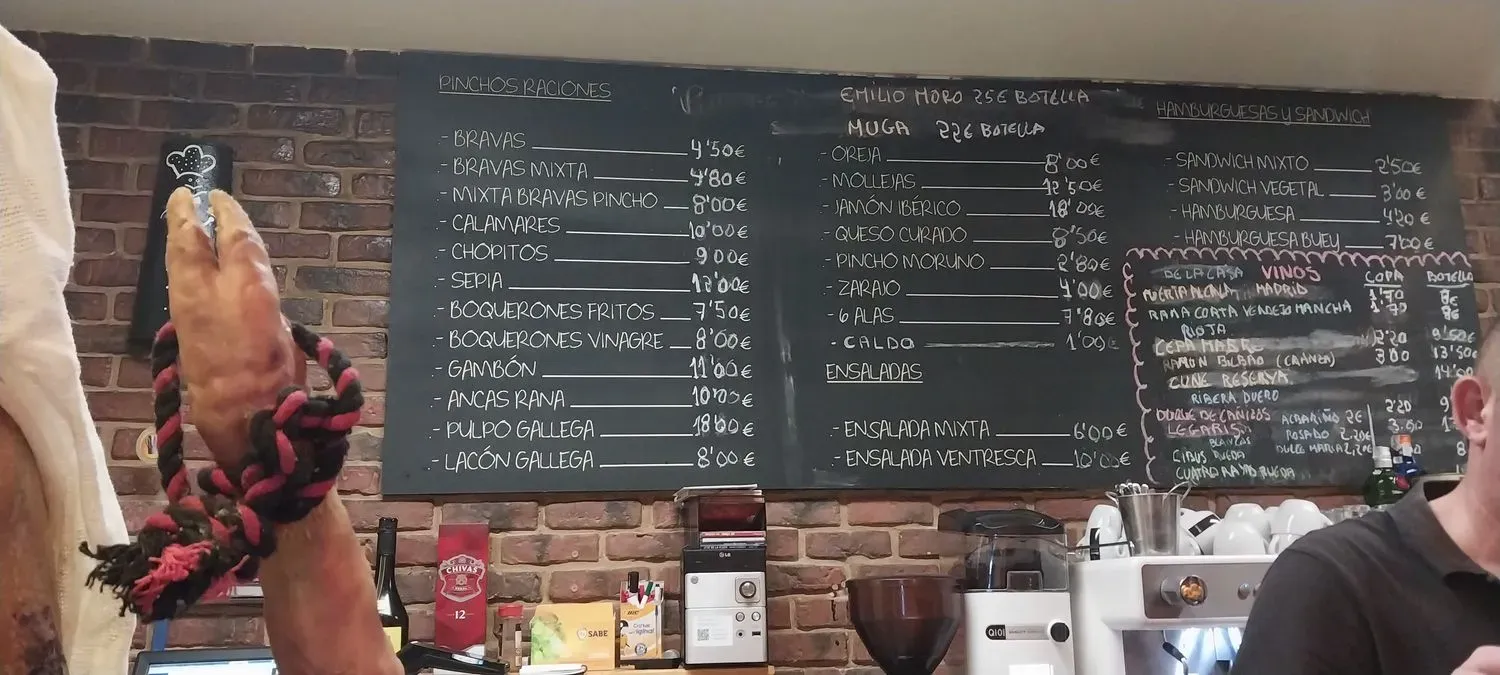 PINCHOS RACIONES
- BRAVAS 4'50€
- BRAVAS MIXTA 4'80€
- MIXTA BRAVAS PINCHO 8'00€
- CALAMARES 10'00€
- CHOPITOS 9'00€
- SEPIA 12'00€
- BOQUERONES FRITOS 7'50€
- BOQUERONES VINAGRE 8'00€
- GAMBÓN 11'00€
- ANCAS RANA 10'00€
- PULPO GALLEGA 18'00€
- LACÓN GALLEGA 8'00€
EMILIO MORO 25€ BOTELLA
MUGA 22€ BOTELLA
- OREJA 8'00€
- MOLLEJAS 12'50€
- JAMÓN IBÉRICO 18'00€
- QUESO CURADO 8'50€
- PINCHO MORUNO 2'80€
- ZARAJO 4'00€
- 6 ALAS 7'80€
- CALDO 1'00€
ENSALADAS
- ENSALADA MIXTA 6'00€
- ENSALADA VENTRESCA 10'00€
HAMBURGUESAS Y SANDWICH
- SANDWICH MIXTO 2'50€
- SANDWICH VEGETAL 3'00€
- HAMBURGUESA 4'20€
- HAMBURGUESA BUEY 7'00€
DE LA CASA VINOS COPA BOTELLA
MADRID 1'70
MANCHA 1'70
RIOJA
CEPA MADRE 2'20
RAMON BILBAO (CRIANZA) 3'00
CUNE RESERVA
RIBERA DUERO
2'20
LEGARIS
ALBARIÑO 2€
ROSADO 2,20€
BLANCOS
DULCE MARIA 2,20€
RUEDA
CUATRO RAYAS RUEDA
CHIVAS
12
LG
SABE
BIC
QIOI